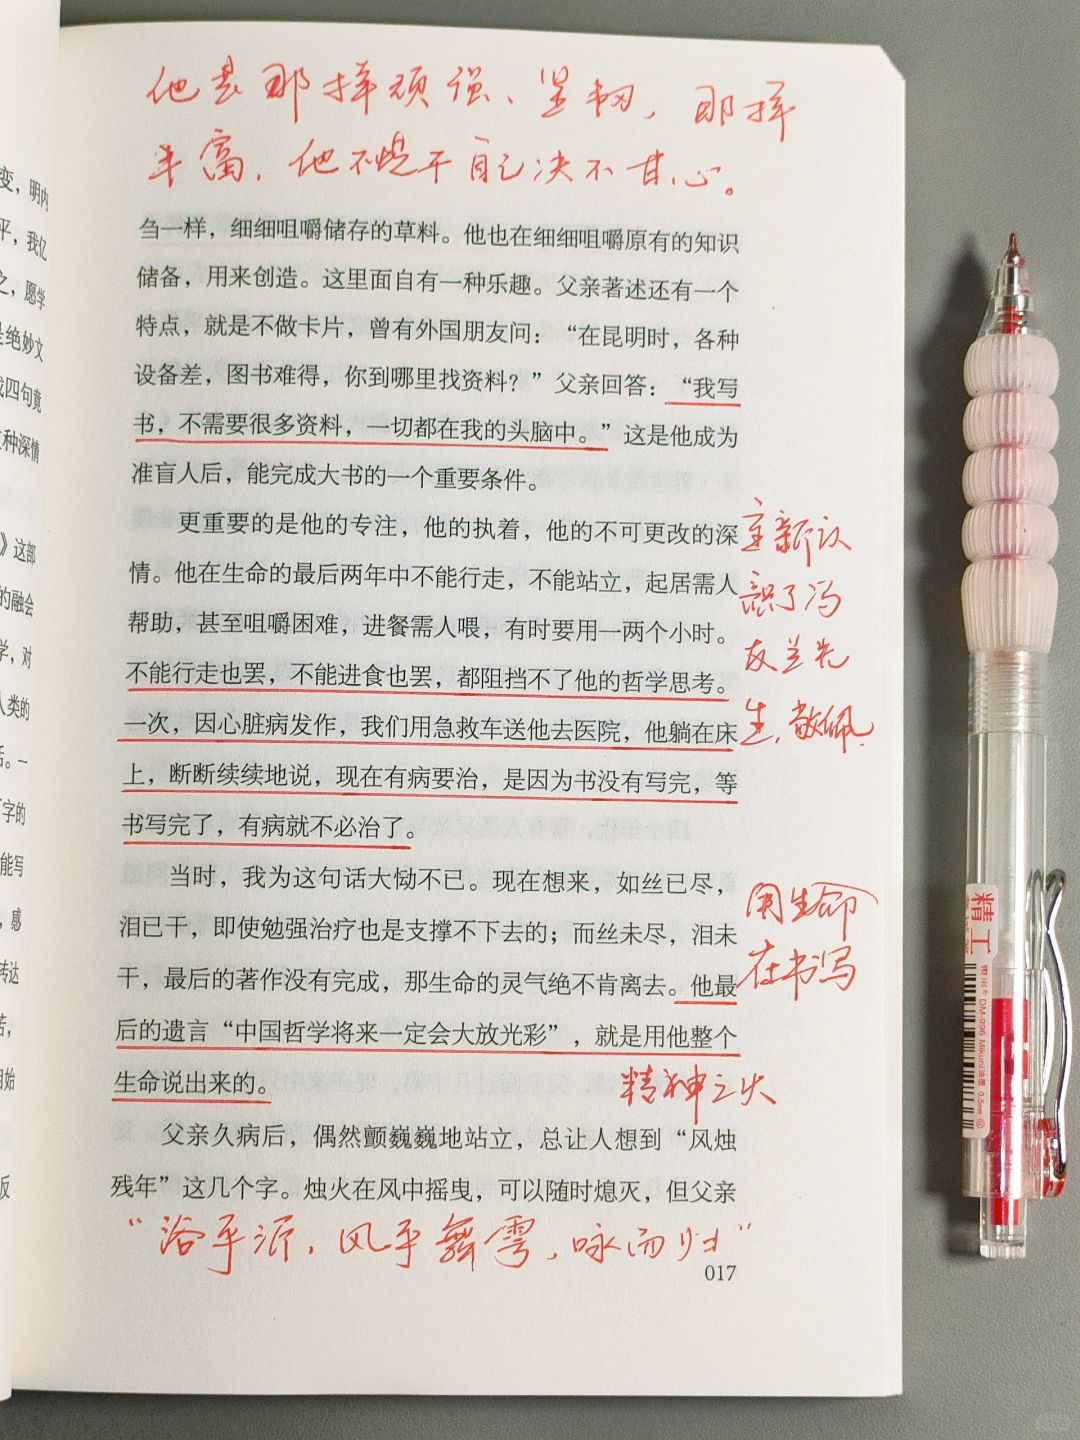 他是那样顽强、坚韧，那样
丰富，他不燃干自己决不甘心。
刍一样，细细咀嚼储存的草料。他也在细细咀嚼原有的知识
储备，用来创造。这里面自有一种乐趣。父亲著述还有一个
特点，就是不做卡片，曾有外国朋友问：“在昆明时，各种
设备差，图书难得，你到哪里找资料？”父亲回答：“我写
书，不需要很多资料，一切都在我的头脑中。”这是他成为
准盲人后，能完成大书的一个重要条件。
更重要的是他的专注，他的执着，他的不可更改的深
情。他在生命的最后两年中不能行走，不能站立，起居需人
帮助，甚至咀嚼困难，进餐需人喂，有时要用一两个小时。
不能行走也罢，不能进食也罢，都阻挡不了他的哲学思考。
一次，因心脏病发作，我们用急救车送他去医院，他躺在床
上，断断续续地说，现在有病要治，是因为书没有写完，等
书写完了，有病就不必治了。
当时，我为这句话大恸不已。现在想来，如丝已尽，
泪已干，即使勉强治疗也是支撑不下去的；而丝未尽，泪未
干，最后的著作没有完成，那生命的灵气绝不肯离去。他最
后的遗言“中国哲学将来一定会大放光彩”，就是用他整个
生命说出来的。
父亲久病后，偶然颤巍巍地站立，总让人想到“风烛
残年”这几个字。烛火在风中摇曳，可以随时熄灭，但父亲
重新认
识了冯
友兰先
生，敬佩.
用生命
在书写
精神之火
“浴乎沂，风乎舞雩，咏而归”
017
变，明内
平，我亿
之，愿学
是绝妙文
戏四句竟
种深情
》这部
的融会
学，对
人类的
活。一
字的
能写
，感
转达
苦，
相始
版
精工
DM-996 Mikuni油墨 0.5mm